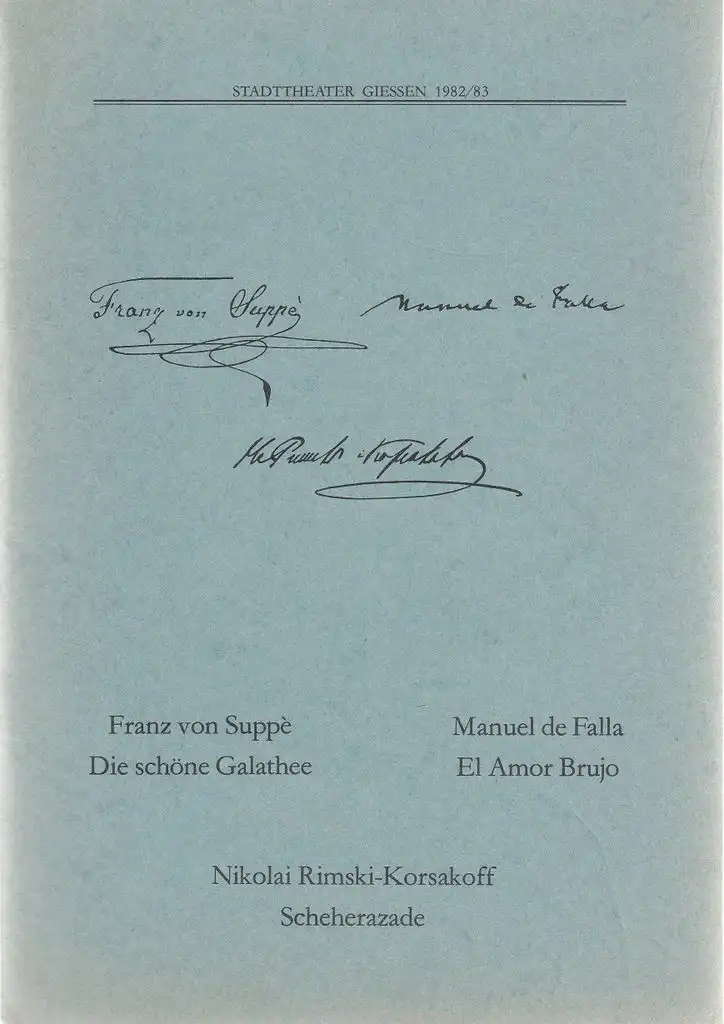 STADTTHEATER GIESSEN 1982/83
Franz von Suppè
Manuel de Falla
Franz von Suppè
Die schöne Galathee
Manuel de Falla
El Amor Brujo
Nikolai Rimski-Korsakoff
Scheherazade